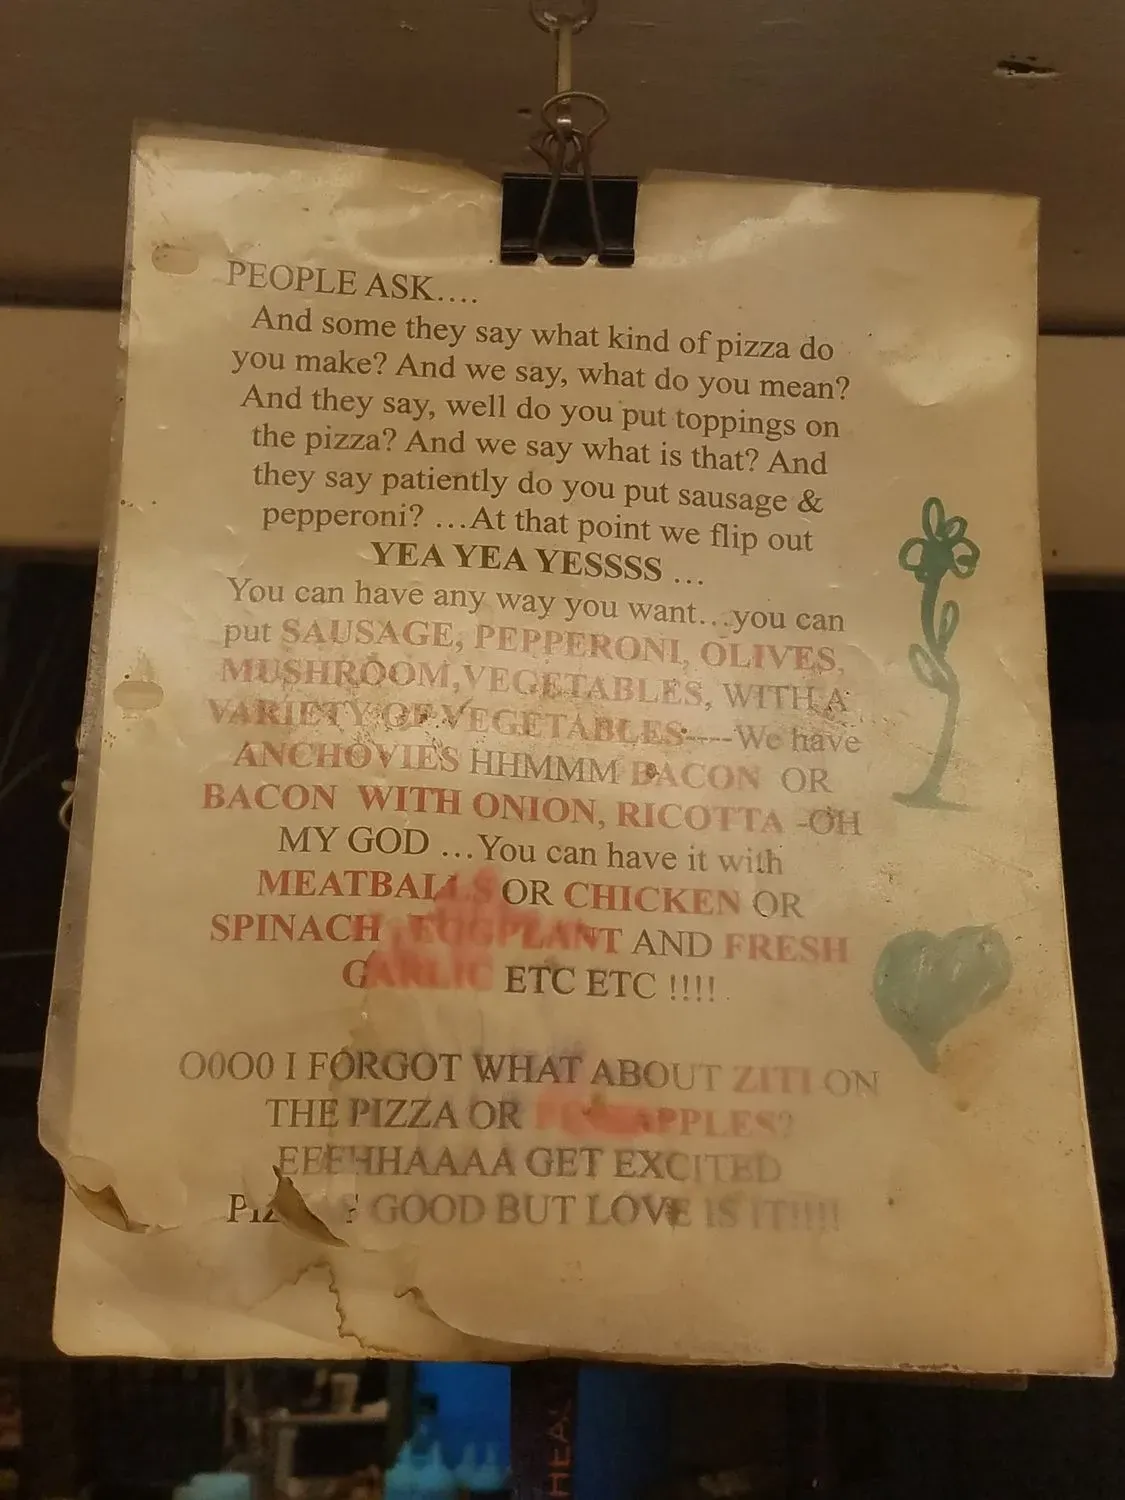 PEOPLE ASK....
And some they say what kind of pizza do
you make? And we say, what do you mean?
And they say, well do you put toppings on
the pizza? And we say what is that? And
they say patiently do you put sausage &
pepperoni? ...At that point we flip out
YEA YEA YESSSS ...
You can have any way you want...you can
put SAUSAGE, PEPPERONI, OLIVES,
MUSHROOM,VEGETABLES, WITH A
VARIETY OF VEGETABLES----We have
ANCHOVIES HHMMM BACON OR
BACON WITH ONION, RICOTTA -OH
MY GOD ...You can have it with
MEATBALLS OR CHICKEN OR
SPINACH, EGGPLANT AND FRESH
GARLIC ETC ETC !!!!
OOOO I FORGOT WHAT ABOUT ZITI ON
THE PIZZA OR
EEEHHAAAA GET EXCITED
GOOD BUT LOVE IS IT!!!!
HEAL